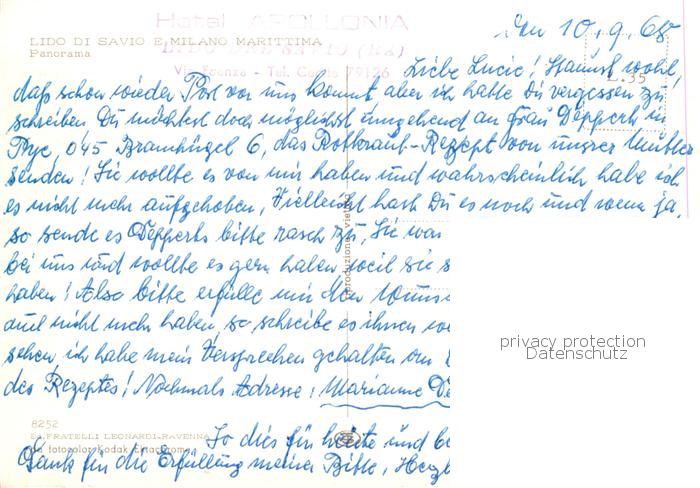 Hotel APOLLONIA
LIDO DI SAVIO (RA)
Via Firenze - Tel. Cervia 79126
LIDO DI SAVIO E MILANO MARITTIMA
Panorama
L. 35
Den 10.9.68
Liebe Lucie! Staunst wohl,
daß schon wieder Post von uns kommt aber ich hatte Dir vergessen zu
schreiben Du möchtest doch möglichst umgehend an Frau Depperts in
045 Bramhügel 6, das Rotkraut-Rezept von unsrer Mutter
senden! Sie wollte es von mir haben und wahrscheinlich habe ich
es nicht mehr aufgehoben, Vielleicht hast Du es noch und wenn ja,
so sende es Depperts bitte rasch zu, Sie war
bei uns und wollte es gern haben, weil sie s
haben! Also bitte erfülle mir den Wuns
auch nicht mehr haben, so schreibe es ihnen
sehen ich habe mein Versprechen gehalten
des Rezeptes! Nochmals Adresse: Marianne De
So dies für heute und
Dank für die Erfüllung meiner Bitte, Herzl
riproduzione vietata
8252
Ed. FRATELLI LEONARDI-RAVENNA
da fotocolor Kodak Ektachrome
privacy protection
Datenschutz